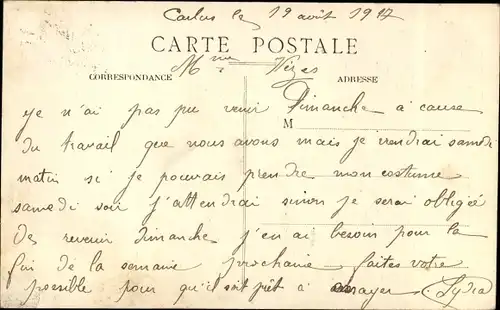 Carlus le 19 août 1917
CARTE POSTALE
CORRESPONDANCE
ADRESSE
Mme
M
Je n'ai pas pu venir Dimanche à cause
du travail que nous avons mais je viendrai samedi
matin si je pouvais prendre mon costume
samedi soir j'attendrai sinon je serai obligée
de revenir dimanche j'en ai besoin pour la
fin de la semaine prochaine faites votre
possible pour qu'il soit prêt à essayer Lydia